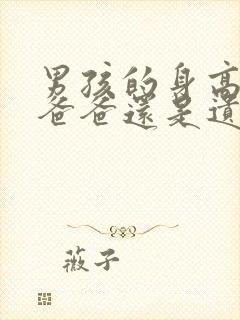 男孩的身高
爸爸還是遺
薇子